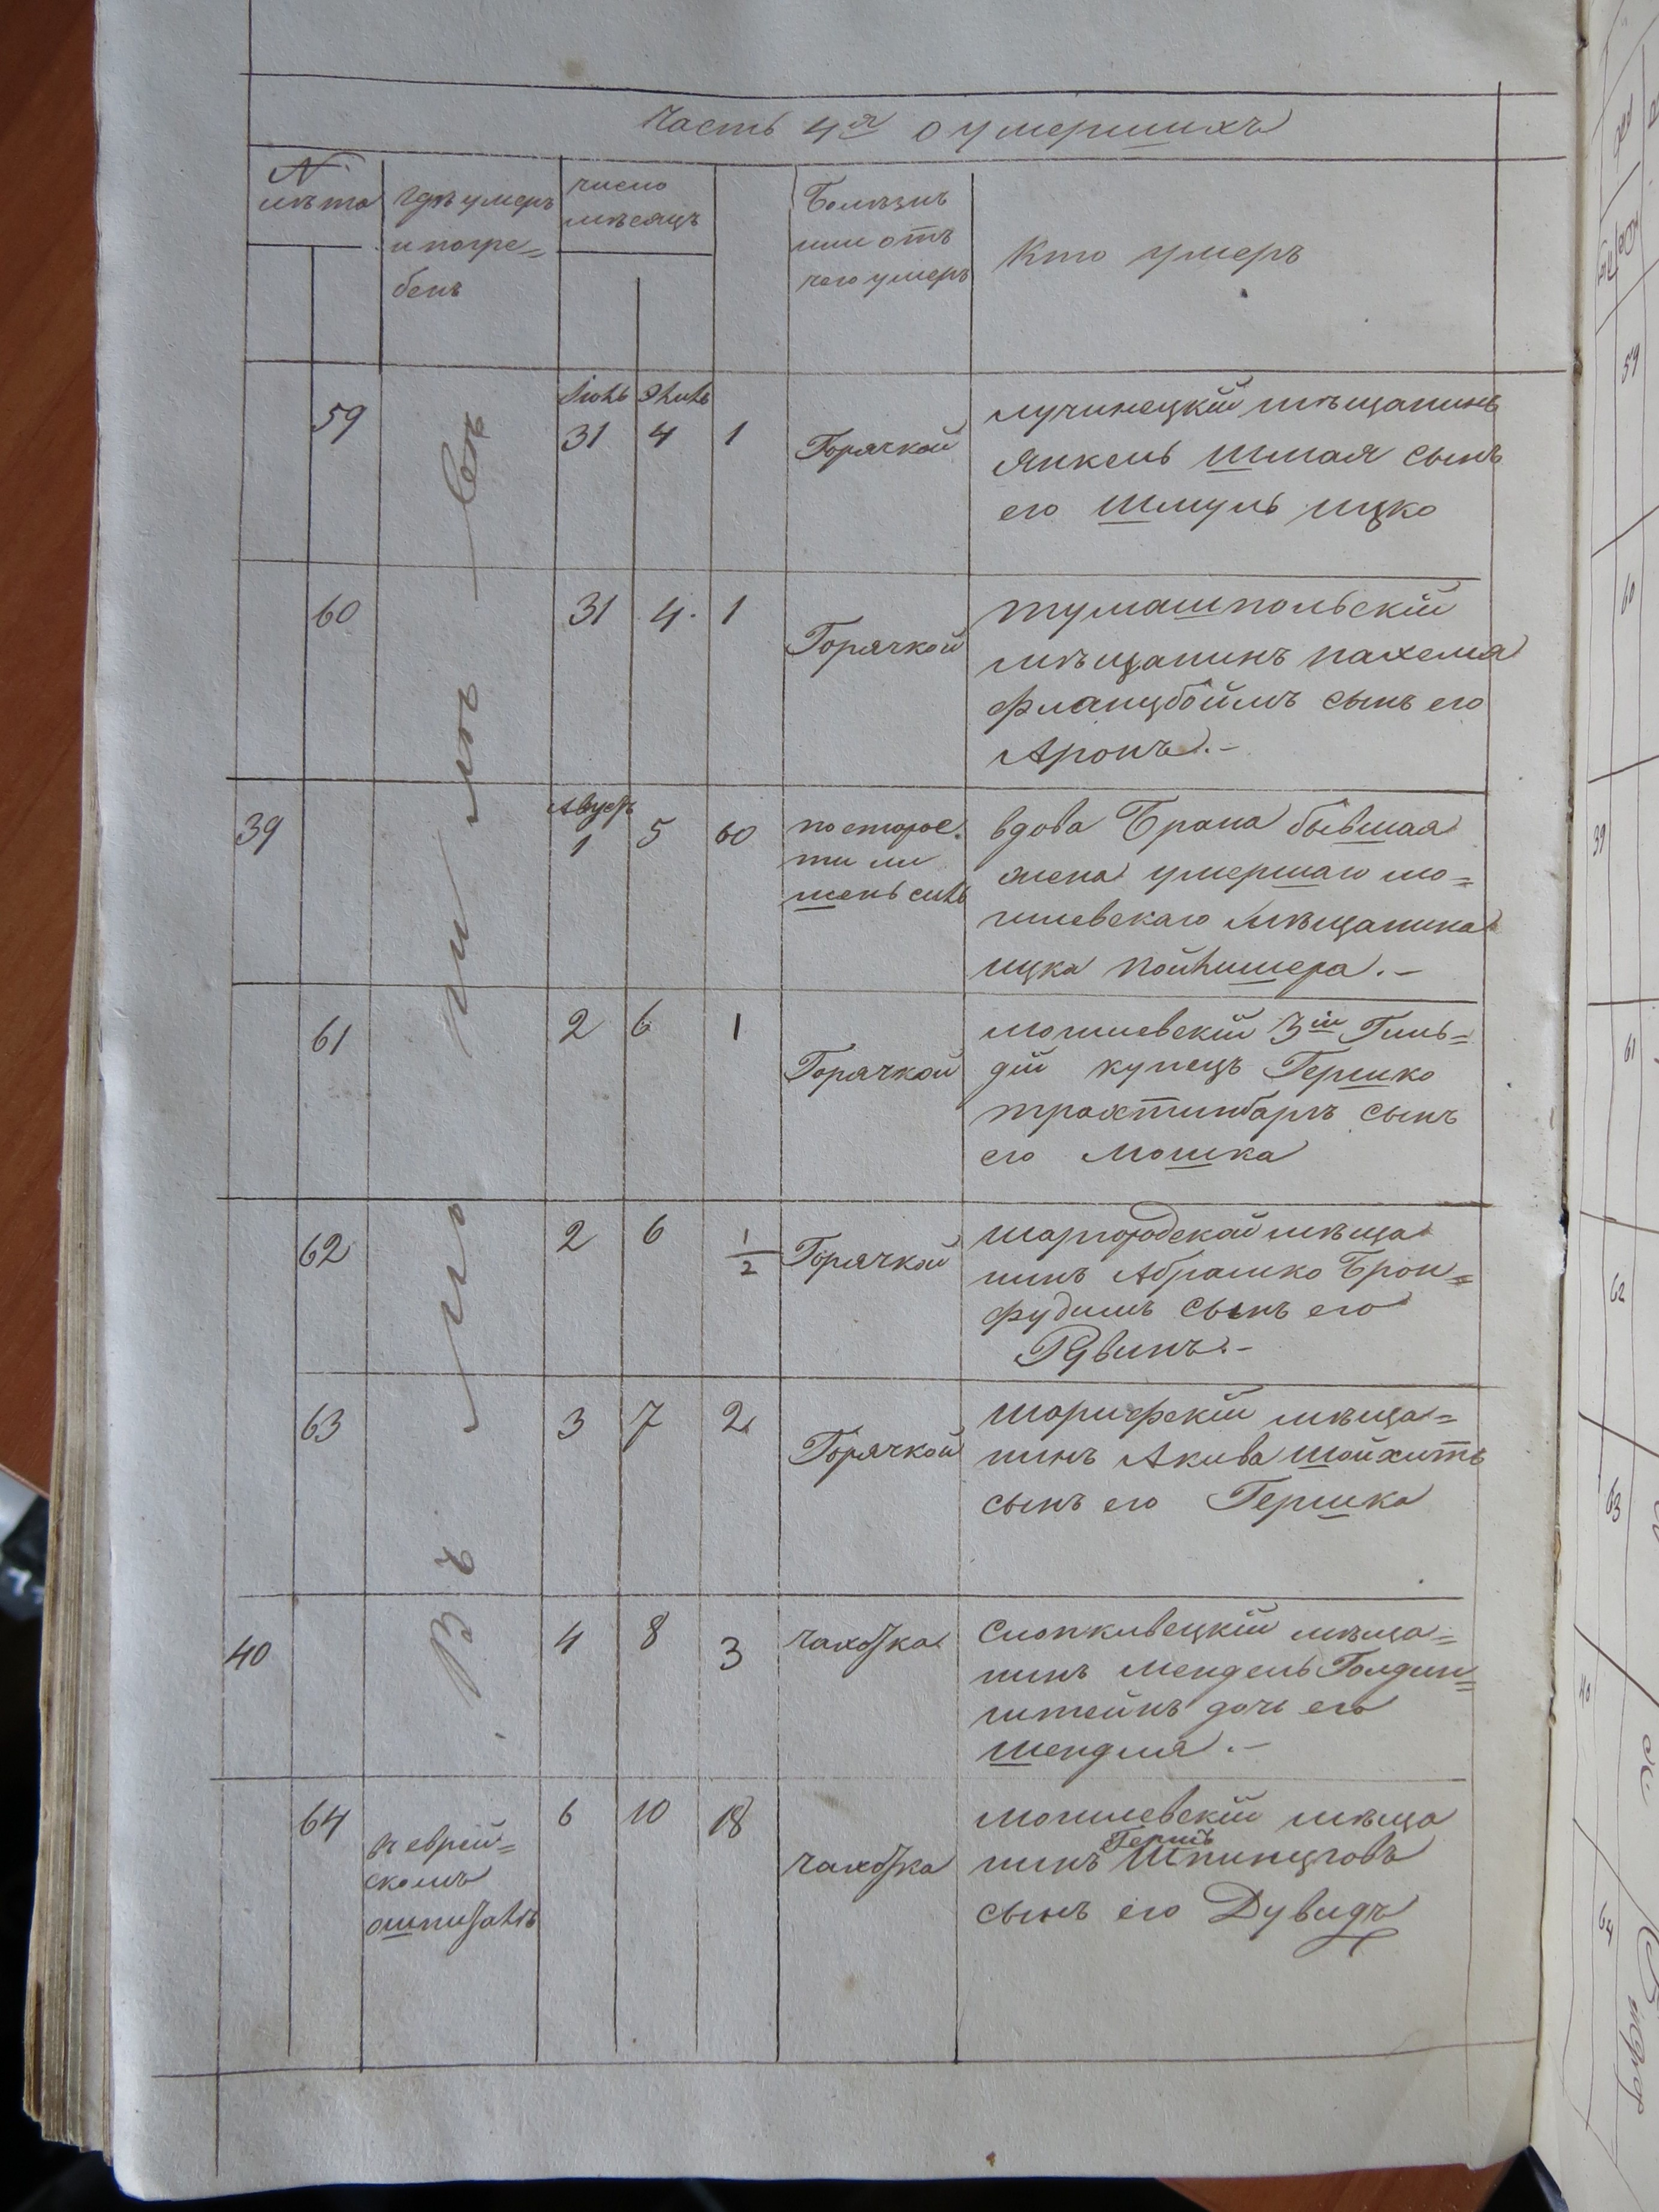 Часть 4я о умершихъ
№
лѣта
гдѣ умеръ
и погре=
бенъ
число
мѣсяцъ
Болѣзнь
или отъ
чего умеръ
Кто умеръ
59
31 4 1
Горячкой
лучинецкій мѣщанинъ
Янкель Шмая сынъ
его Шмуль ицко
60
31 4. 1
Горячкой
тумашпольскій
мѣщанинъ нахема
сынъ его
Аронъ.-
39
Авгус
1 5 60
по старос
ти ли
шень силъ
вдова Брана бывшая
жена умершаго мо=
гилевскаго мѣщанина
ицка
61
2 6 1
Горячкой
могилевскій 3й Гиль=
дій купецъ Гершко
трахтинбарг сынъ
его Мошка
62
2 6 1/2
Горячкой
шаргородской мѣща
нинъ Абрамко Брон=
фудимъ сынъ его
Рувинъ.-
63
3 7 2
Горячкой
шарифскій мѣща=
нинъ Акива шойхитъ
сынъ его Гершка
40
4 8 3
чахотка
снопкивецкій мѣща=
нинъ мендель Голдин=
штейнъ дочь его
шендля.-
Въ Мо ги ле въ
64
въ еврей=
скомъ
6 10 18
чахотка
могилевскій мѣща
нинъ Гершъ
сынъ его Дувидъ
59
60
39
61
62
63
40
64